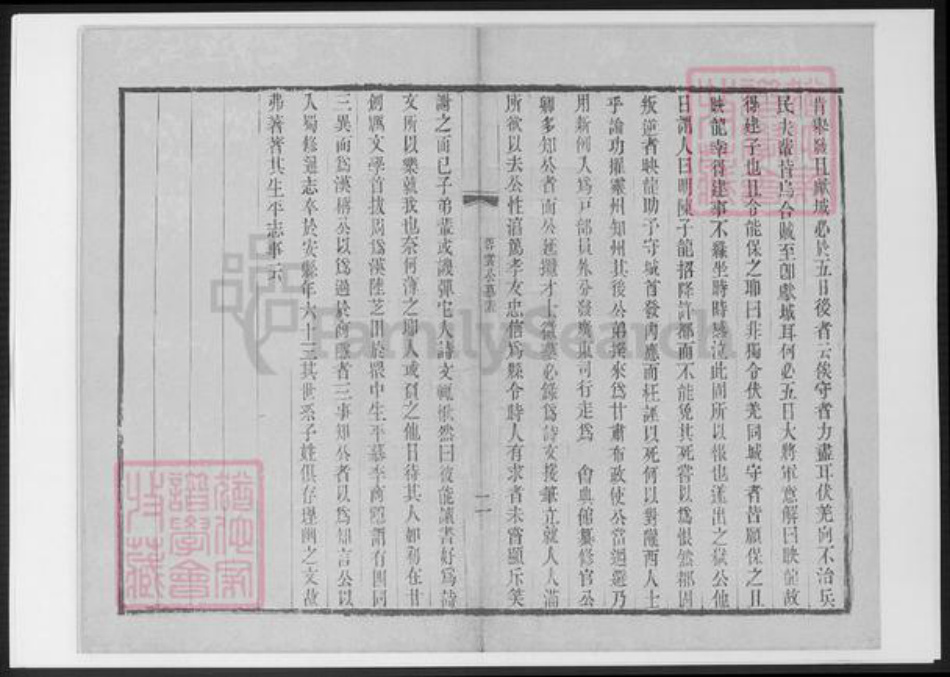 肯舉發且獻城必於五日後者云俟守者力盡耳伏羌向不治兵
民夫輩皆烏合賊至即獻城耳何必五日大將軍意解曰映龍故
得建子也且令能保之耶曰非獨令伏羌同城守者皆願保之且
映龍幸得建事不難坐時時感泣此固所以報也遂出之獄公他
日謂人曰明陳子龍招降許都而不能免其死嘗以為恨然都固
叛逆者映龍助予守城首發內應而枉誣以死何以對隴西人士
乎論功擢靈州知州其後公弟揆來為甘肅布政使公當迴避乃
用新例入為戶部員外分發廣東司行走為 會典館纂修官公
卿多知公者而公延攬才士微藝必錄為詩文援筆立就人人滿
所欲以去公性滔篤孝友忠信為縣令時人有求者未嘗顯斥笑
蓉裳公墓表
二
謝之而已子弟輩或譏彈它人詩文輒愀然曰彼能讀書好為詩
文所以樂就我也奈何薄之耶人或負之他日待其人如初在甘
以為文學首拔周為漢陸芝田於眾中生平慕李商隱謂有四同
三異而為漢稱公以為過於商隱者三事知公者以為知言公以
入蜀修通志卒於安縣年六十三其世系子姓俱存埋幽之文故
弗著著其生平志事云
FamilySearch
猶他家
譜學會
收藏